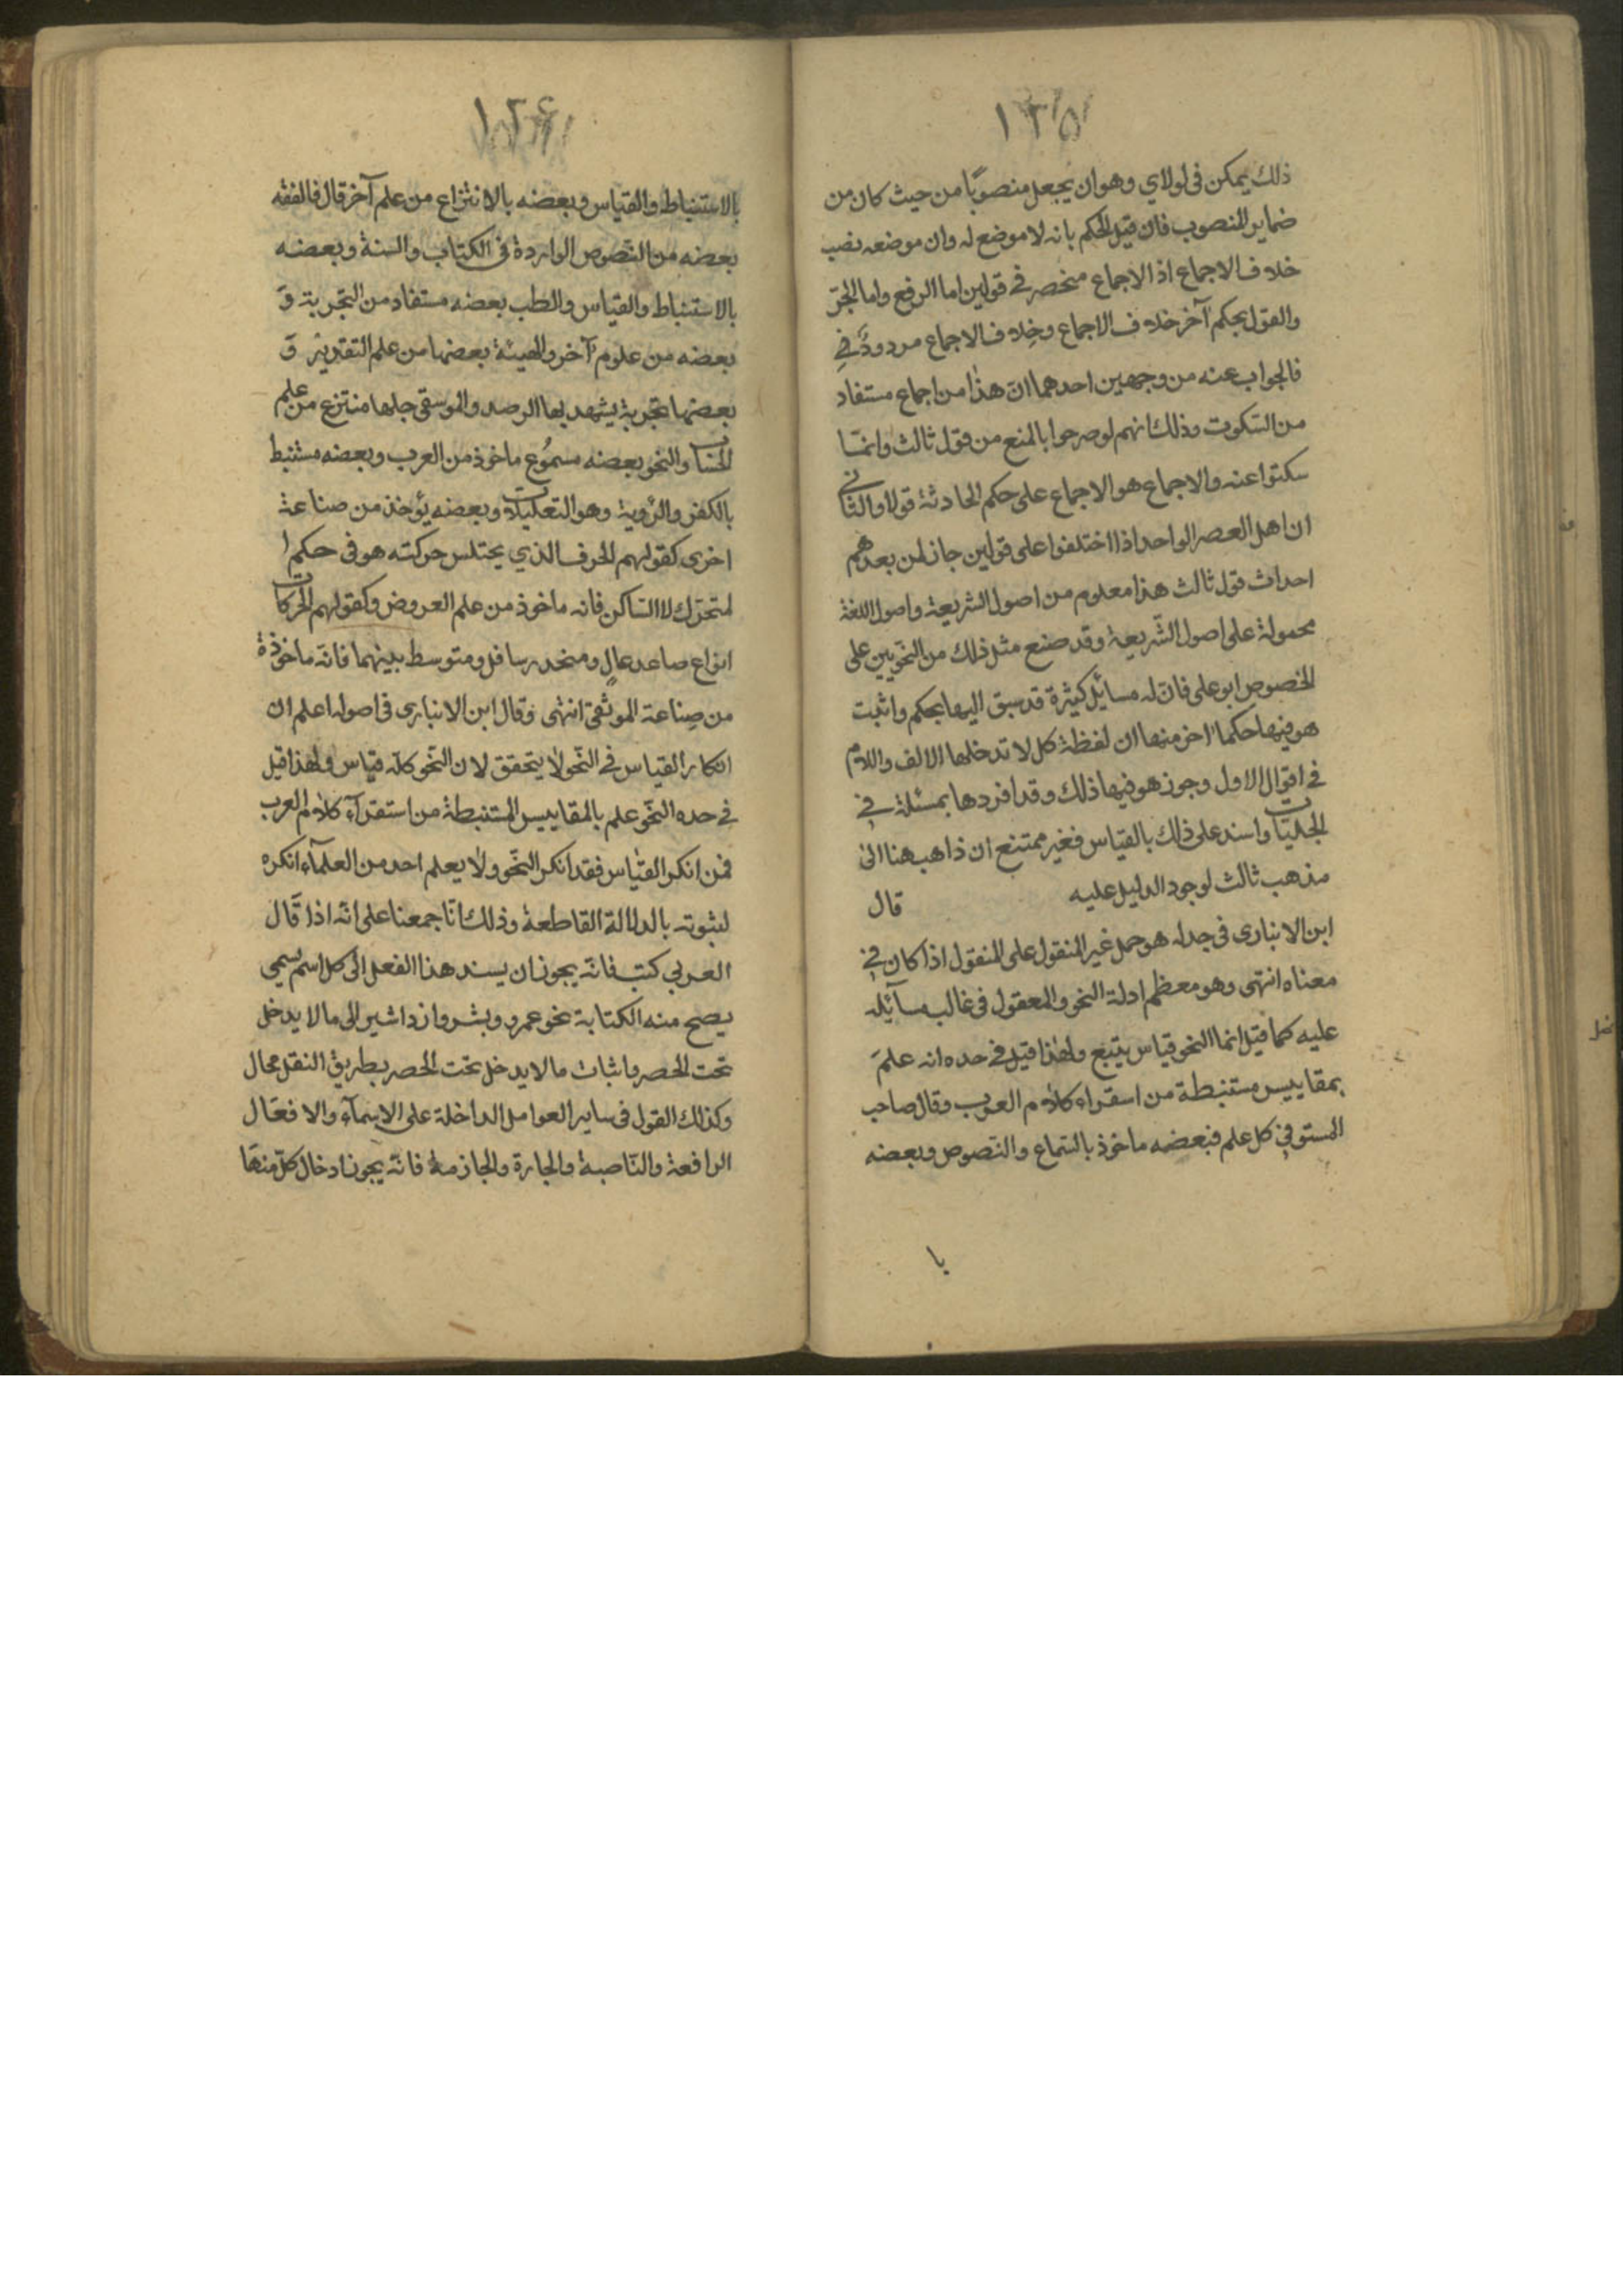 ١٢٥
ذلك يمكن فى لولاي وهو ان يجعل منصوبًا من حيث كان من
ضماير المنصوب فان قيل الحكم بانه لا موضع له وان موضعه نصب
خلاف الاجماع اذ الاجماع منحصر في قولين اما الرفع واما الجرّ
والقول بحكم آخر خلاف الاجماع وخلاف الاجماع مردود في
فالجواب عنه من وجهين احدهما انّ هذا من اجماع مستفاد
من السّكوت وذلك انهم لو صرحوا بالمنع من قول ثالث وانمّا
سكتوا عنه والاجماع هو الاجماع على حكم الحادثة قولا والثانى
ان اهل العصر الواحد اذا اختلفوا على قولين جاز لمن بعدهم
احداث قول ثالث هذا معلوم من اصول الشريعة واصول اللغة
محمولة على اصول الشّريعة وقد صنع مثل ذلك من النحّويين على
الخصوص ابو على فانّ له مسائل كثيرة قد سبق اليها بحكم واثبت
هو فيها حكما اخر منها ان لفظة كل لا تدخلها الالف واللام
في اقوال الاول وجوز هو فيها ذلك وقد افردها بمسئلة في
الحلبيّات واسند على ذلك بالقياس فغير ممتنع ان ذاهب هنا الى
مذهب ثالث لوجود الدليل عليه قال
ابن الانبارى فى جدله هو حمل غير المنقول على المنقول اذا كان في
معناه انتهى وهو معظم ادلة النحو والمعقول فى غالب مسآئله
عليه كما قيل انما النحو قياس يتبع ولهذا قيل في حده انه علم
بمقاييس مستنبطة من اسقراء كلام العرب وقال صاحب
المستوفي كل علم فبعضه ماخوذ بالسّماع والنّصوص وبعضه
با
١٢٦
بالاستنباط والقياس وبعضه بالانتزاع من علم آخر قال فالفقه
بعضه من النّصوص الواردة فى الكتاب والسنة وبعضه
بالاستنباط والقياس والطب بعضه مستفاد من التجربة وَ
بعضه من علوم آخر والهيئة بعضها من علم التقدير وَ
بعضها تجربة يشهد بها الرصد والموسقى جلها منتزع من علم
الحساب والنحو بعضه مسمُوع ماخوذ من العرب وبعضه مستنبط
بالكفر والرّوية وهو التعليلات وبعضه يؤخذ من صناعة
اخرى كقولهم الحرف الذي يختلس حركته هو فى حكم ا
لمتحرّك لا السّاكن فانه ماخوذ من علم العروض وكقولهم الحركات
انواع صاعد عالٍ ومنحدر سافل ومتوسط بينهما فانّه ماخوذة
من صناعة الموثقى انتهى وقال ابن الانبارى فى اصوله اعلم ان
انكار القياس في النّحو لا يتحقق لان النّحو كلّه قياس ولهذا قيل
في حده النّحو علم بالمقاييس المستنبطة من استقرآء كلام العرب
فمن انكر القياس فقد انكر النّحو ولا يعلم احد من العلمآء انكره
لثبوته بالدلالة القاطعة وذلك انّا جمعنا على انّه اذا قال
العربي كتب فانّه يجوز ان يسند هذا الفعل الى كل اسم يسمي
يصح منه الكتابة نحو عمرو وبشر وازداشير الى ما لا يدخل
تحت الحصر واثبات ما لا يدخل تحت الحصر بطريق النقل محال
وكذلك القول فى ساير العوامل الداخلة على الاسمآء والافعال
الرافعة والنّاصبة والجارة والجازمة فانّه يجوز ادخال كلّ منها